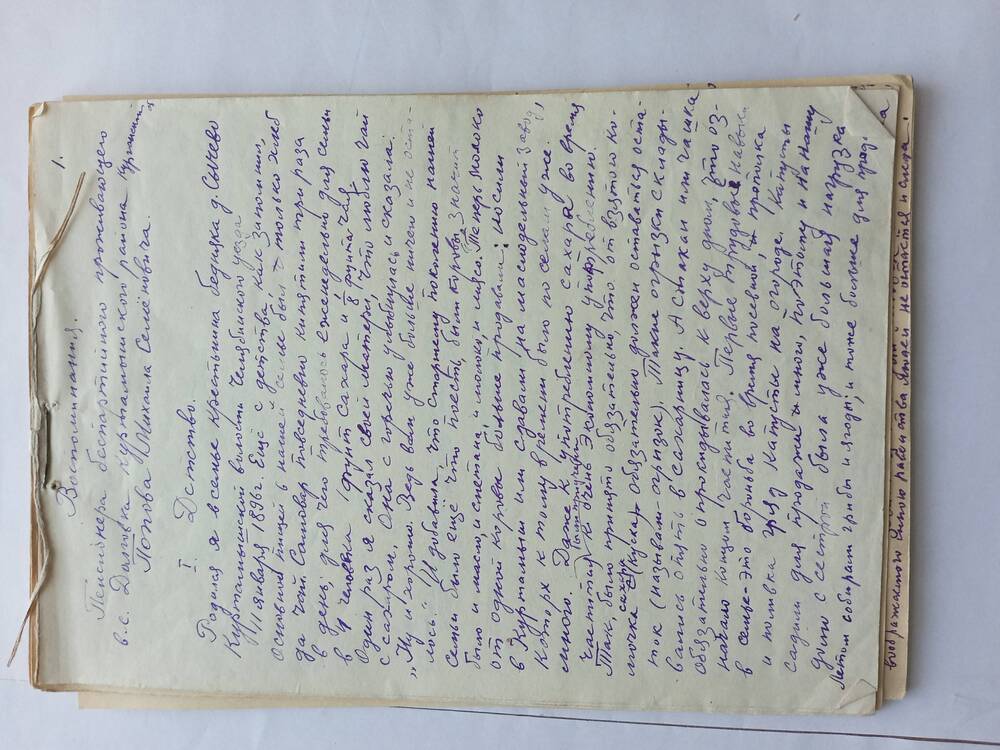 1.
Воспоминания.
Пенсионера беспартийного проживающего
в с. Долговка Куртамышского района Курганской об
Попова Михаила Семёновича.
I Детство.
Родился я в семье крестьянина бедняка д. Сычево
Куртамышской волости Челябинского уезда
11 января 1896 г. Ещё с детства, как запомнил,
основной пищей в нашей семье был – только хлеб
да чай. Самовар повседневно кипятили три раза
в день, для чего требовалось еженедельно для семьи
в 4 человека 1 фунт сахара и 1/8 фунта чая.
Один раз я сказал своей матери, что люблю чай
с сахаром. Она с горечью улыбнулась и сказала:
„Ну и хорошо. Ведь вам уже больше ничего и не оста-
лось." И добавила, что старшему поколению нашей
семьи было ещё что поесть, были коровы, значит
было и масло, и сметана и молоко, и мясо. Теперь молоко
от одной коровы больше продавали: носили
в Куртамыш им сдавали на маслодельный завод,
которых к тому времени было по селам уже
много. Даже к употреблению сахара во время
чаепития был приучен к очень экономному употреблению.
Так, было принято обязательно, что от взятого ко-
мочка сахара (куска) обязательно должен оставаться оста-
ток (называли-огрызок). Такие огрызки склады-
вались опять в сахарницу. А стакан или чашка
обязательно опрокидывалась к верху дном, это оз-
начало конец чаепития. Первые трудовые навыки
в семье-это бороньба во время посевной, прополка
и поливка гряд капусты на огороде. Капусты
садили для продажи много, поэтому и на нашу
долю с сестрой была уже большая нагрузка
Летом собирали грибы и ягоды; и тоже больше для прода